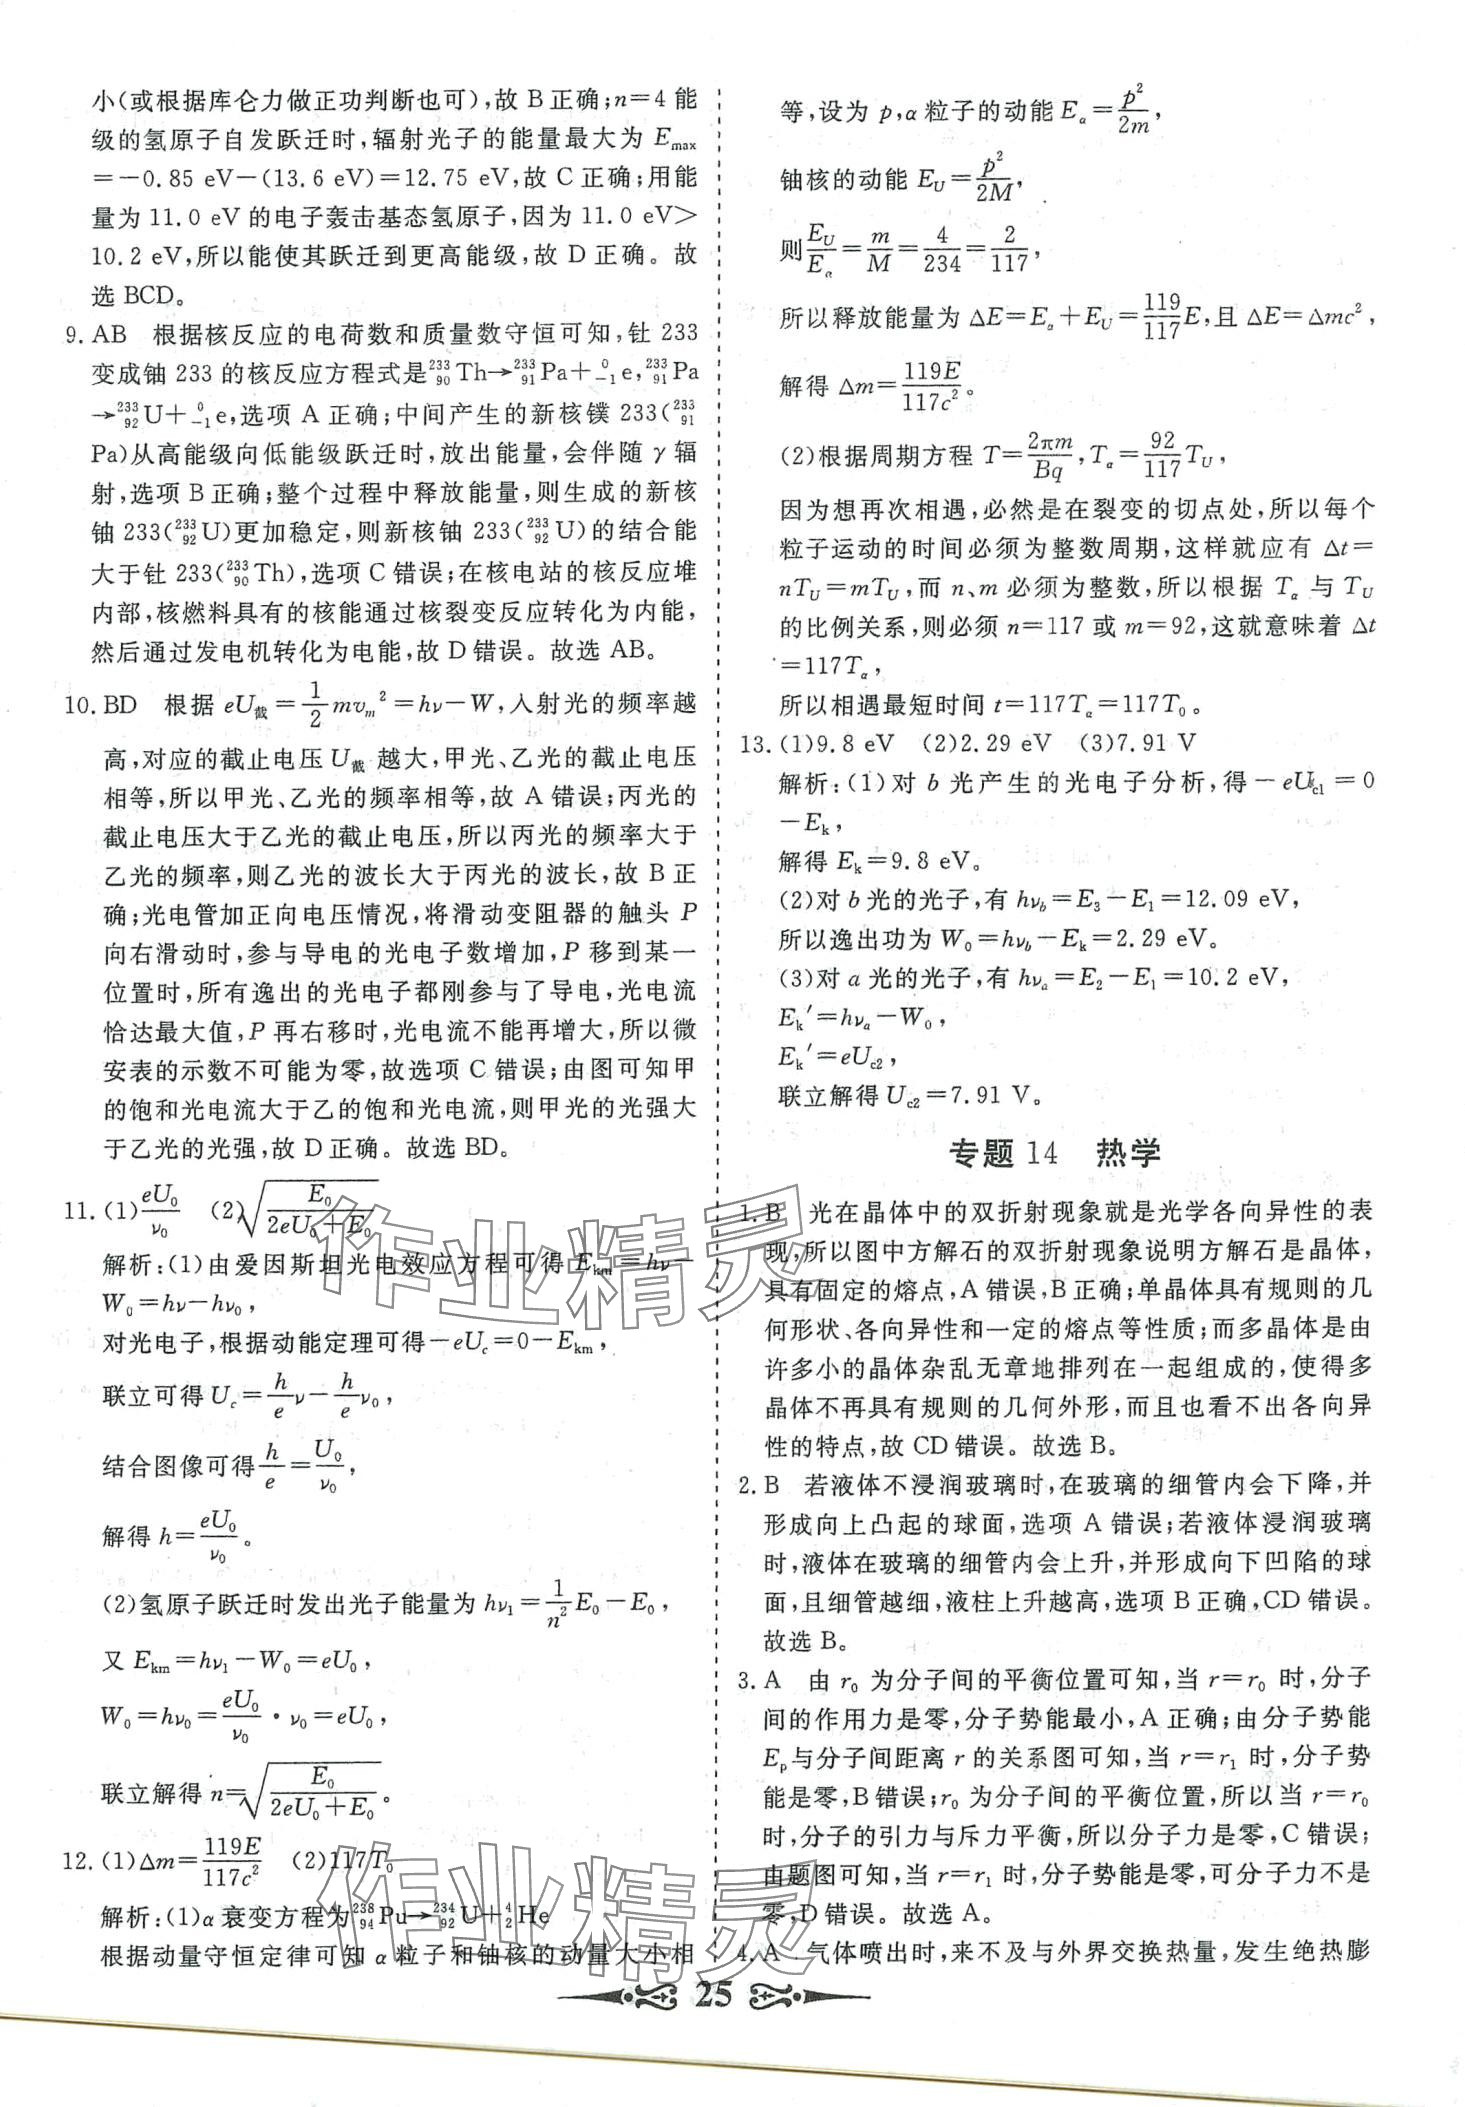 小(或根据库仑力做正功判断也可),故 B 正确;n=4 能
级的氢原子自发跃迁时,辐射光子的能量最大为 Emax
=-0.85 eV-(13.6 eV)=12.75 eV,故 C 正确;用能
量为 11.0 eV 的电子轰击基态氢原子,因为 11.0 eV>
10.2 eV,所以能使其跃迁到更高能级,故 D 正确。故
选 BCD。
9. AB 根据核反应的电荷数和质量数守恒可知,钍 233
变成铀 233 的核反应方程式是²³³₉₀Th→²³³₉₁Pa+⁰₋₁e,²³³₉₁Pa
→²³³₉₂U+⁰₋₁e,选项 A 正确;中间产生的新核镤 233(²³³₉₁
Pa)从高能级向低能级跃迁时,放出能量,会伴随 γ 辐
射,选项 B 正确;整个过程中释放能量,则生成的新核
铀 233(²³³₉₂U)更加稳定,则新核铀 233(²³³₉₂U)的结合能
大于钍 233(²³³₉₀Th),选项 C 错误;在核电站的核反应堆
内部,核燃料具有的核能通过核裂变反应转化为内能,
然后通过发电机转化为电能,故 D 错误。故选 AB。
10. BD 根据 eU截=1/2 mvₘ²=hν-W,入射光的频率越
高,对应的截止电压 U截 越大,甲光、乙光的截止电压
相等,所以甲光、乙光的频率相等,故 A 错误;丙光的
截止电压大于乙光的截止电压,所以丙光的频率大于
乙光的频率,则乙光的波长大于丙光的波长,故 B 正
确;光电管加正向电压情况,将滑动变阻器的触头 P
向右滑动时,参与导电的光电子数增加,P 移到某一
位置时,所有逸出的光电子都刚参与了导电,光电流
恰达最大值,P 再右移时,光电流不能再增大,所以微
安表的示数不可能为零,故选项 C 错误;由图可知甲
的饱和光电流大于乙的饱和光电流,则甲光的光强大
于乙光的光强,故 D 正确。故选 BD。
11. (1) eU₀/ν₀ (2) √(E₀/(2eU₀+E₀))
解析:(1)由爱因斯坦光电效应方程可得 Ekm=hν-
W₀=hν-hν₀,
对光电子,根据动能定理可得-eUc=0-Ekm,
联立可得 Uc=h/e ν-h/e ν₀,
结合图像可得 h/e=U₀/ν₀,
解得 h=eU₀/ν₀。
(2)氢原子跃迁时发出光子能量为 hν₁=1/n² E₀-E₀,
又 Ekm=hν₁-W₀=eU₀,
W₀=hν₀=eU₀/ν₀·ν₀=eU₀,
联立解得 n=√(E₀/(2eU₀+E₀))。
12. (1)Δm=119E/117c² (2)117T₀
解析:(1)α 衰变方程为²³⁸₉₄Pu→²³⁴₉₂U+⁴₂He
根据动量守恒定律可知 α 粒子和铀核的动量大小相
等,设为 p,α 粒子的动能 Eα=p²/2m,
铀核的动能 EU=p²/2M,
则 EU/Eα=m/M=4/234=2/117,
所以释放能量为 ΔE=Eα+EU=119/117 E,且 ΔE=Δmc²,
解得 Δm=119E/117c²。
(2)根据周期方程 T=2πm/Bq,Tα=92/117 TU,
因为想再次相遇,必然是在裂变的切点处,所以每个
粒子运动的时间必须为整数周期,这样就应有 Δt=
nTU=mTU,而 n、m 必须为整数,所以根据 Tα 与 TU
的比例关系,则必须 n=117 或 m=92,这就意味着 Δt
=117Tα,
所以相遇最短时间 t=117Tα=117T₀。
13. (1)9.8 eV (2)2.29 eV (3)7.91 V
解析:(1)对 b 光产生的光电子分析,得-eUc1=0
-Ek,
解得 Ek=9.8 eV。
(2)对 b 光的光子,有 hνb=E₃-E₁=12.09 eV,
所以逸出功为 W₀=hνb-Ek=2.29 eV。
(3)对 a 光的光子,有 hνa=E₂-E₁=10.2 eV,
Ek′=hνa-W₀,
Ek′=eUc2,
联立解得 Uc2=7.91 V。
专题 14 热学
1. B 光在晶体中的双折射现象就是光学各向异性的表
现,所以图中方解石的双折射现象说明方解石是晶体,
具有固定的熔点,A 错误,B 正确;单晶体具有规则的几
何形状、各向异性和一定的熔点等性质;而多晶体是由
许多小的晶体杂乱无章地排列在一起组成的,使得多
晶体不再具有规则的几何外形,而且也看不出各向异
性的特点,故 CD 错误。故选 B。
2. B 若液体不浸润玻璃时,在玻璃的细管内会下降,并
形成向上凸起的球面,选项 A 错误;若液体浸润玻璃
时,液体在玻璃的细管内会上升,并形成向下凹陷的球
面,且细管越细,液柱上升越高,选项 B 正确,CD 错误。
故选 B。
3. A 由 r₀ 为分子间的平衡位置可知,当 r=r₀ 时,分子
间的作用力是零,分子势能最小,A 正确;由分子势能
Ep与分子间距离 r 的关系图可知,当 r=r₁ 时,分子势
能是零,B 错误;r₀ 为分子间的平衡位置,所以当 r=r₀
时,分子的引力与斥力平衡,所以分子力是零,C 错误;
由题图可知,当 r=r₁ 时,分子势能是零,可分子力不是
零,D 错误。故选 A。
4. A 气体喷出时,来不及与外界交换热量,发生绝热膨
25
作业精灵
作业精灵